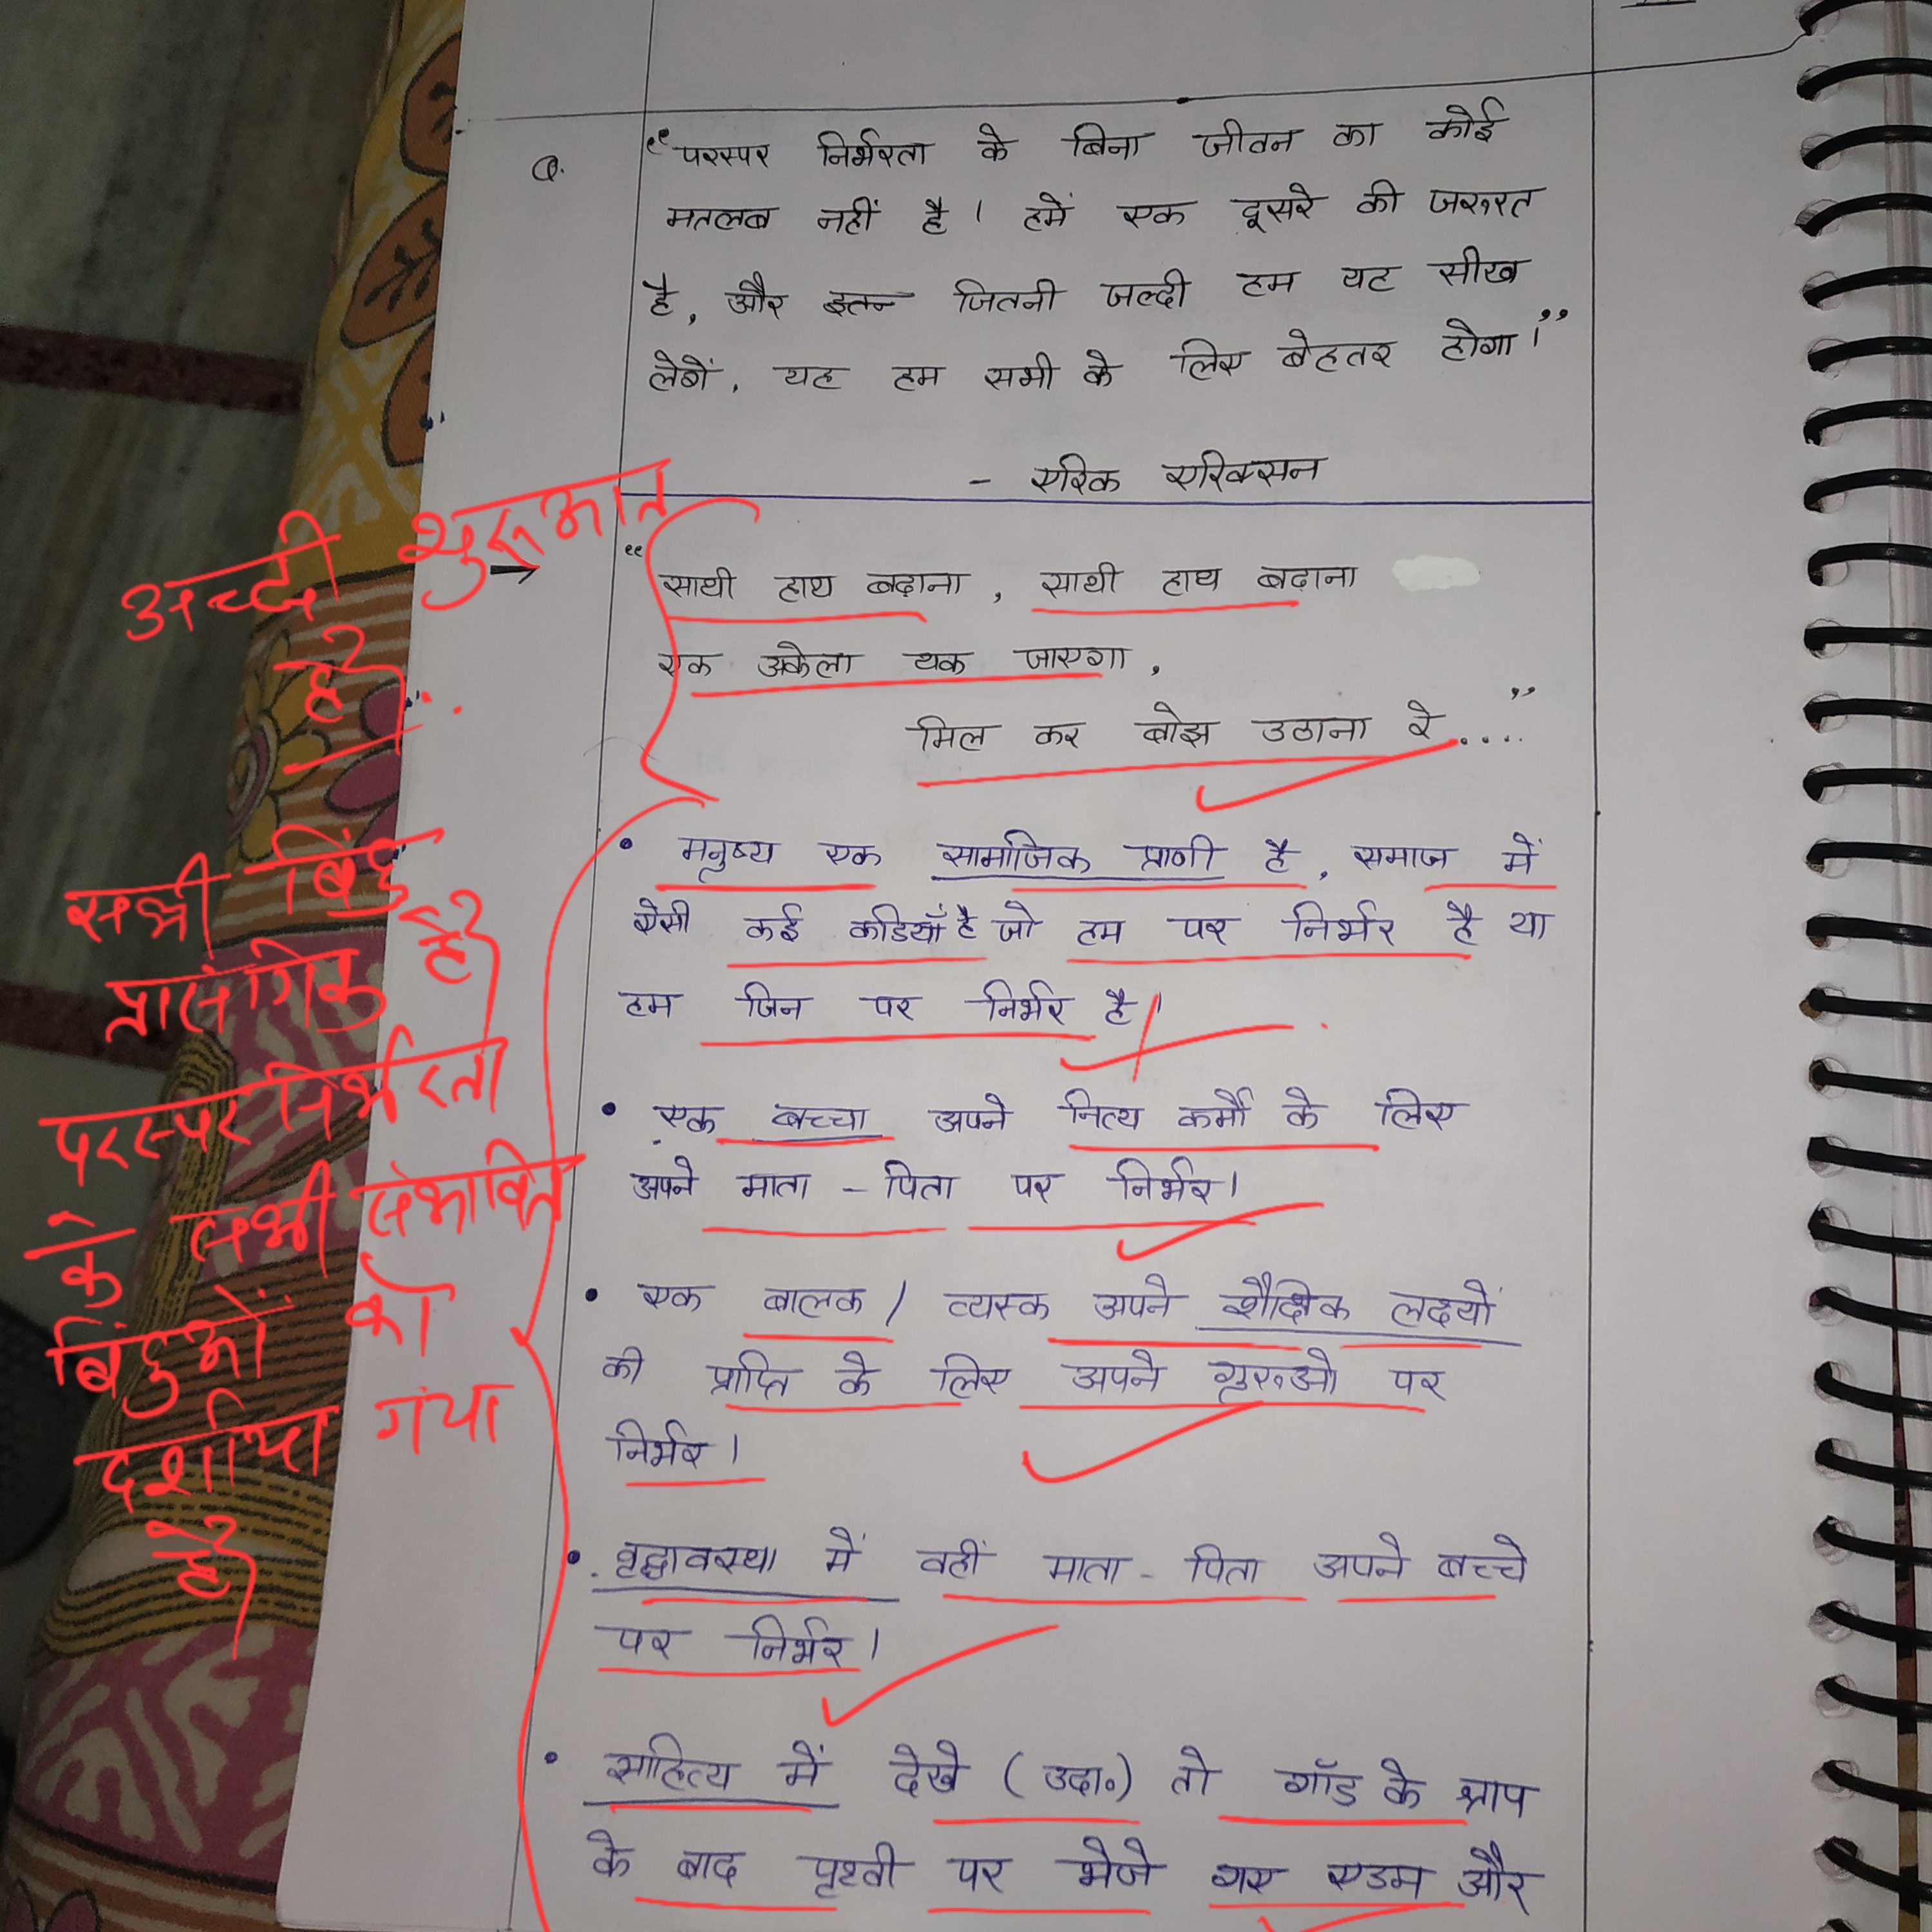 Q.
“परस्पर निर्भरता के बिना जीवन का कोई
मतलब नहीं है। हमें एक दूसरे की जरुरत
है, और जितनी जल्दी हम यह सीख
लेगें, यह हम सभी के लिए बेहतर होगा।”
- एरिक एरिक्सन
अच्छी शुरूआत
है।
→ “साथी हाथ बढ़ाना, साथी हाथ बढ़ाना
एक अकेला थक जाएगा,
मिल कर बोझ उठाना रे....”
सभी बिंदु
प्रासंगिक है
परस्पर निर्भरता
के सभी संभावित
बिंदुओं को
दर्शाया गया
है
• मनुष्य एक सामाजिक प्राणी है, समाज में
ऐसी कई कडियाँ है जो हम पर निर्भर है या
हम जिन पर निर्भर है।
• एक बच्चा अपने नित्य कर्मों के लिए
अपने माता - पिता पर निर्भर।
• एक बालक / व्यस्क अपने शैक्षिक लक्ष्यों
की प्राप्ति के लिए अपने गुरुओ पर
निर्भर।
• वृद्धावस्था में वहीं माता - पिता अपने बच्चे
पर निर्भर।
• साहित्य में देखे (उदा०) तो गॉड के श्राप
के बाद पृथ्वी पर भेजे गए एडम और